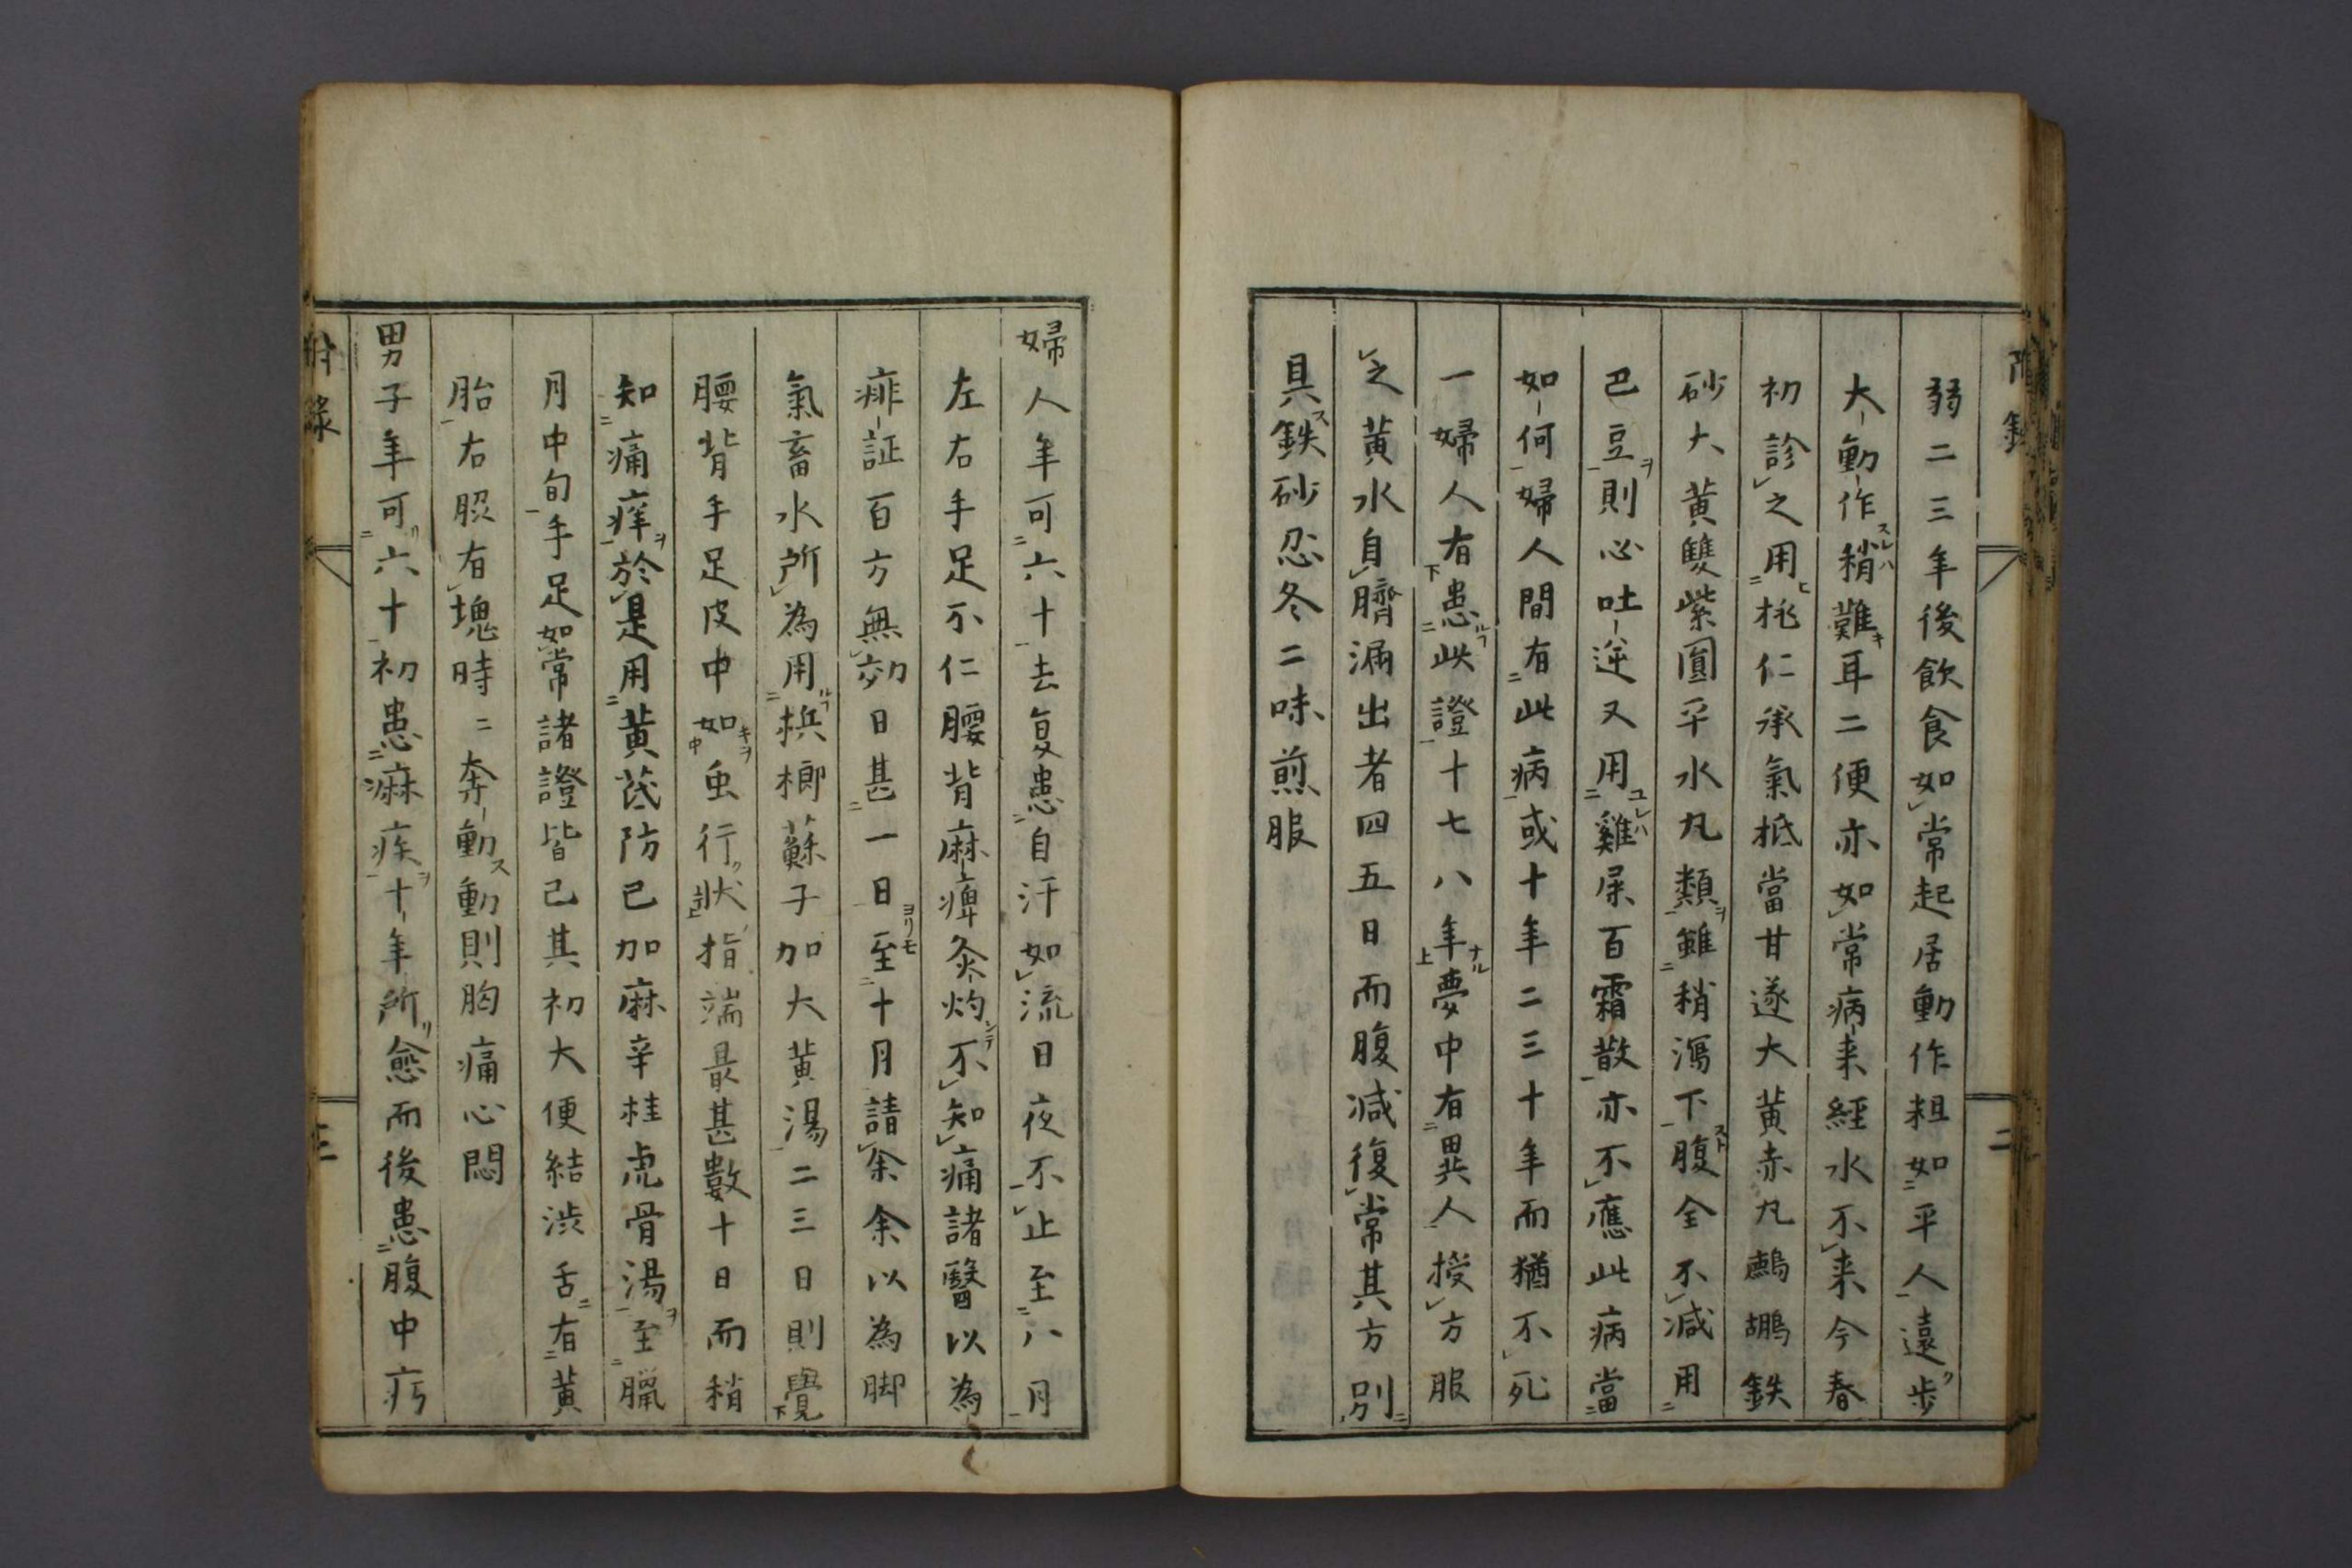 附錄
二
弱二三年後飲食如常起居動作粗如平人遠歩
大動作稍難耳二便亦如常病来經水不来今春
初診之用桃仁承氣抵當甘遂大黄赤丸鷓鶘鉄
砂大黄雙紫圓平水丸類雖稍瀉下腹全不減用
巴豆則必吐逆又用雞屎百霜散亦不應此病當
如何婦人間有此病或十年二三十年而猶不死
一婦人有患此證十七八年夢中有異人授方服
之黄水自臍漏出者四五日而腹減復常其方別
具鉄砂忍冬二味煎服
婦人年可六十去夏患自汗如流日夜不止至八月
左右手足不仁腰背麻痺灸灼不知痛諸醫以為
痱証百方無効日甚一日至十月請余余以為脚
氣畜水所為用梹榔蘇子加大黄湯二三日則覺
腰背手足皮中如虫行狀指端最甚數十日而稍
知痛痒於是用黄茋防已加麻辛桂虎骨湯至臘
月中旬手足如常諸證皆已其初大便結渋舌有黄
胎右脇有塊時〻奔動動則胸痛心悶
男子年可六十初患痳疾十年所愈而後患腹中㽲
附錄
三